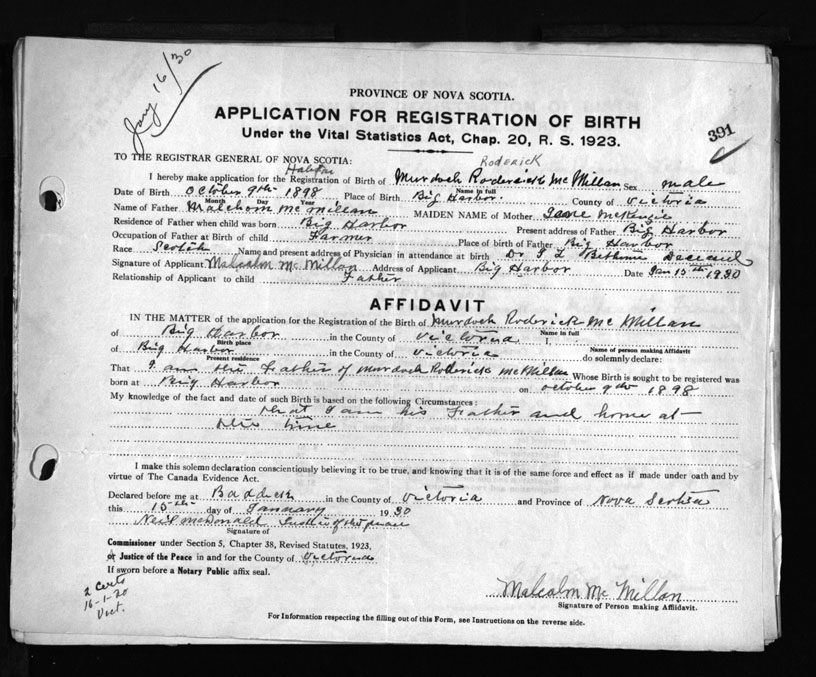 Jany 16/30
PROVINCE OF NOVA SCOTIA.
APPLICATION FOR REGISTRATION OF BIRTH
Under the Vital Statistics Act, Chap. 20, R. S. 1923.
391
TO THE REGISTRAR GENERAL OF NOVA SCOTIA:
RODERICK
I hereby make application for the Registration of Birth of Murdoch Roderick McMillan Sex male
Name in full
Date of Birth October 9th 1898 Place of Birth Big Harbor. County of Victoria
Month Day Year
Name of Father Malcolm McMillan MAIDEN NAME of Mother Jane McKenzie
Residence of Father when child was born Big Harbor Present address of Father Big Harbor
Occupation of Father at Birth of child Farmer Place of birth of Father Big Harbor
Race Scotch Name and present address of Physician in attendance at birth Dr Bethune Deceased
Signature of Applicant Malcolm McMillan Address of Applicant Big Harbor Date Jan 15th 1930
Relationship of Applicant to child Father
AFFIDAVIT
IN THE MATTER of the application for the Registration of the Birth of Murdoch Roderick McMillan
Name in full
of Big Harbor in the County of Victoria I,
Birth place
Name of person making Affidavit
of Big Harbor in the County of Victoria do solemnly declare:
Present residence
That I am the Father of Murdoch Roderick McMillan Whose Birth is sought to be registered was
born at Big Harbor on October 9th 1898
My knowledge of the fact and date of such Birth is based on the following Circumstances:
that I am his Father and home at
the time
I make this solemn declaration conscientiously believing it to be true, and knowing that it is of the same force and effect as if made under oath and by
virtue of The Canada Evidence Act.
Declared before me at Baddeck in the County of Victoria and Province of Nova Scotia
this 15th day of January 1930
Neil McDonald Justice of the peace
Signature of
Commissioner under Section 5, Chapter 38, Revised Statutes, 1923,
or Justice of the Peace in and for the County of Victoria
If sworn before a Notary Public affix seal.
2 Certs
16-1-30
Vict.
Malcolm McMillan
Signature of Person making Affidavit.
For Information respecting the filling out of this Form, see Instructions on the reverse side.